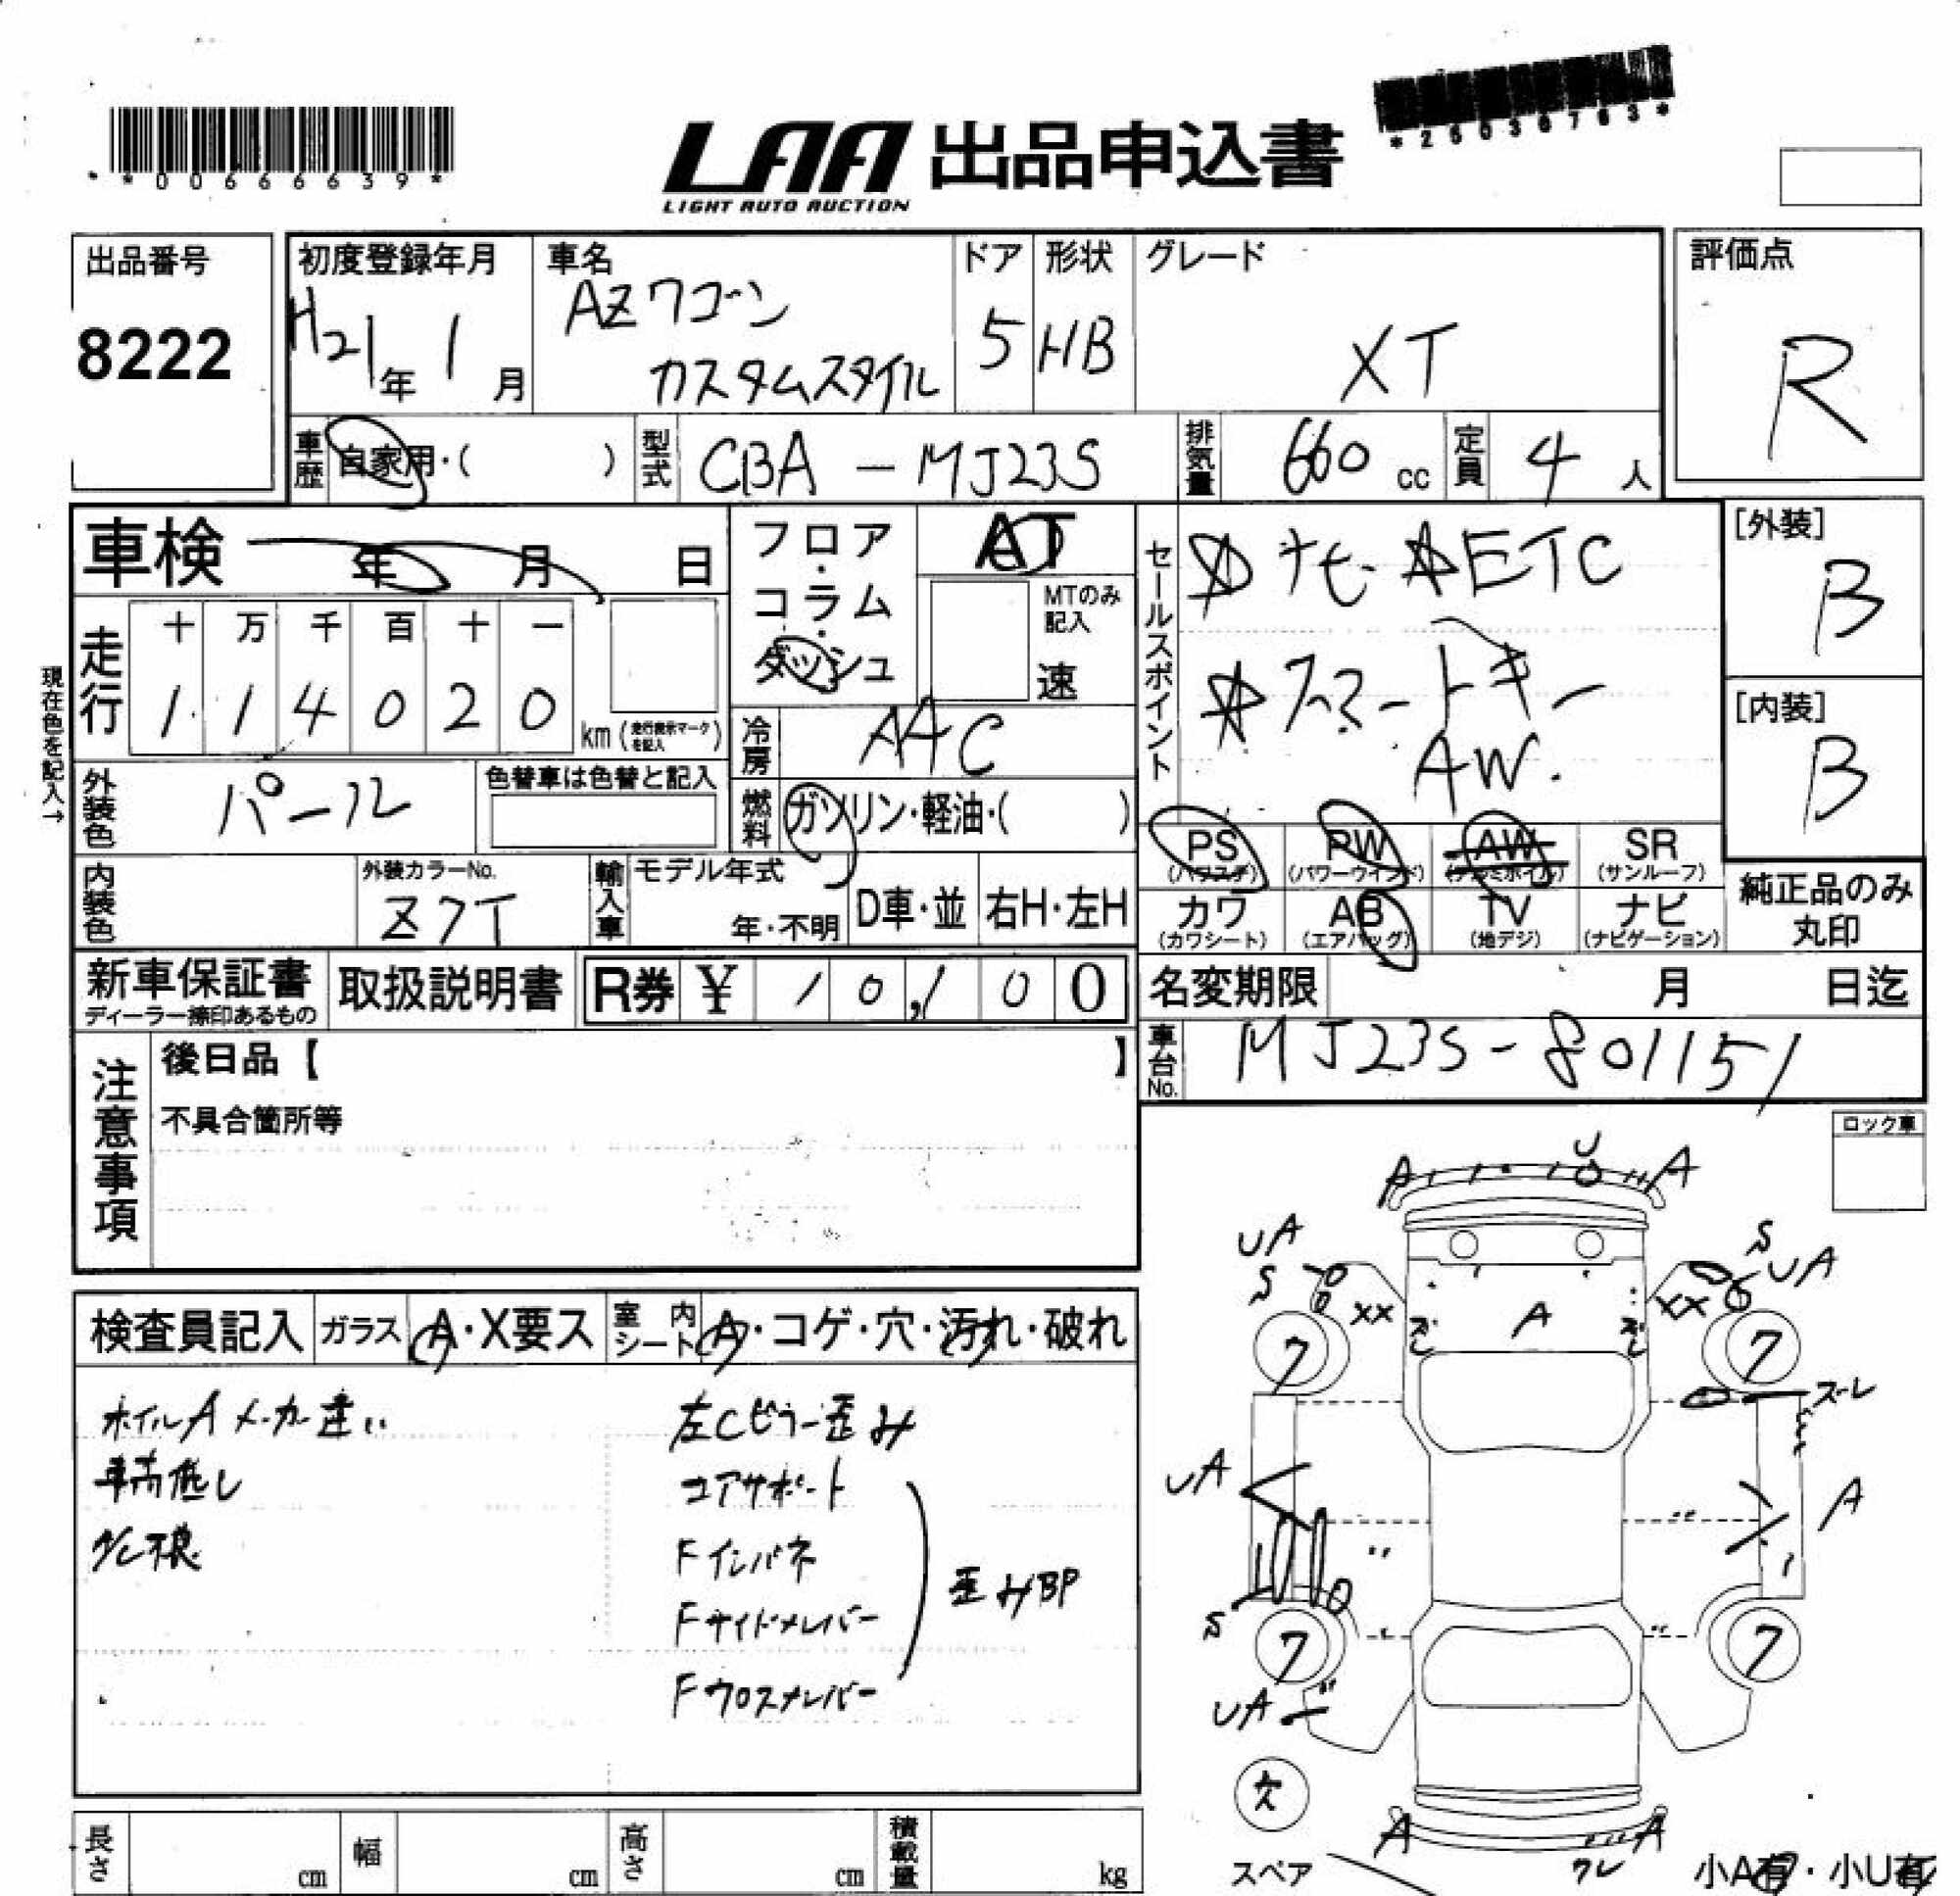 *00666639*
LAA 出品申込書
LIGHT AUTO AUCTION
*25030763*
出品番号
8222
初度登録年月
H21年 1月
車名
AZワゴン
カスタムスタイル
ドア
5
形状
HB
グレード
XT
評価点
R
車歴
自家用・( )
型式
CBA - MJ23S
排気量
660 cc
定員
4 人
車検 年 月 日
フロア・コラム・ダッシュ
AT
MTのみ記入
速
セールスポイント
ナビ ETC
スマートキー
AW.
[外装]
B
[内装]
B
現在色を記入→
走行
十 万 千 百 十 一
1 1 4 0 2 0 km (走行表示マークを記入)
冷房
AAC
外装色
パール
色替車は色替と記入
燃料
ガソリン・軽油・( )
PS (パワステ)
PW (パワーウインド)
AW (アルミホイル)
SR (サンルーフ)
カワ (カワシート)
AB (エアバッグ)
TV (地デジ)
ナビ (ナビゲーション)
純正品のみ丸印
内装色
外装カラーNo.
Z7T
輸入車
モデル年式
年・不明
D車・並
右H・左H
新車保証書
ディーラー捺印あるもの
取扱説明書
R券 ¥ 10,100
名変期限 月 日迄
車台No.
MJ23S-801151
注意事項
後日品【 】
不具合箇所等
ロック車
検査員記入
ガラス
A・X要ス
室内シート
A・コゲ・穴・汚れ・破れ
ホイルA メーカー違い
A/C不良
左Cピラー歪み
コアサポート
Fインパネ
Fサイドメンバー
Fクロスメンバー
歪みBP
U
A
A
UA
S
S
UA
XX
XX
A
7
7
ズレ
UA
A
S
7
7
UA
欠
A
A
スペア
ズレ
小A有・小U有
長さ cm
幅 cm
高さ cm
積載量 kg